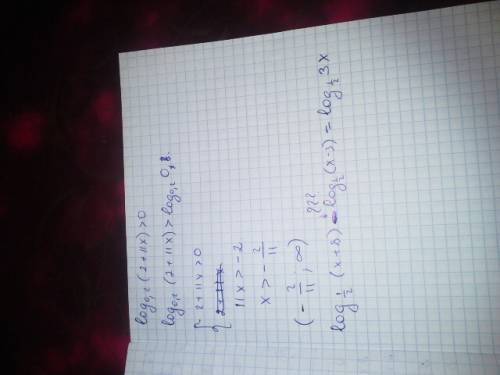 log₀,₂(2+11x)>0
log₀,₂(2+11x)>log₀,₂0,2.
{ 2+11x>0
11x>-2
x>-2/11
(-2/11; ∞)
???
log 1/2 (x+8) - log 1/2 (x-3) = log 1/2 3x